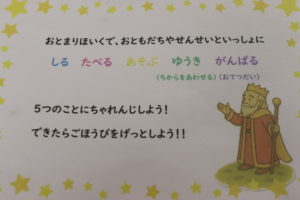 おとまりほいくで、おともだちやせんせいといっしょに
しる たべる あそぶ ゆうき がんばる
(ちからをあわせる)(おてつだい)
5つのことにちゃれんじしよう!
できたらごほうびをげっとしよう!!